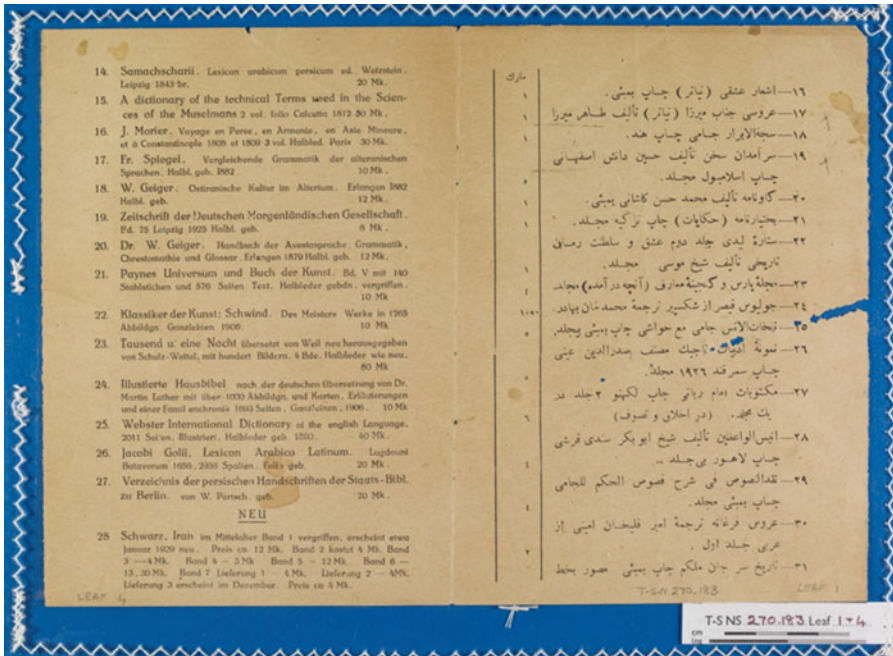 14. Samachscharii. Lexicon arabicum persicum ed. Wetzstein.
Leipzig 1843 br. 20 Mk.
15. A dictionary of the technical Terms used in the Scien-
ces of the Muselmans 2 vol. folio Calcutta 1812 80 Mk.
16. J. Morier. Voyage en Perse, en Armenie, en Asie Mineure,
et à Constantinople 1808 et 1809 3 vol. Halbled. Paris 30 Mk.
17. Fr. Spiegel. Vergleichende Grammatik der alteranischen
Sprachen. Halbl. geb. 1882 10 Mk.
18. W. Geiger. Ostiranische Kultur im Altertum. Erlangen 1882
Halbl. geb. 12 Mk.
19. Zeitschrift der Deutschen Morgenländischen Gesellschaft.
Bd. 75 Leipzig 1925 Halbl. geb. 8 Mk.
20. Dr. W. Geiger. Handbuch der Awestasprache, Grammatik,
Chrestomathie und Glossar. Erlangen 1879 Halbl. geb. 12 Mk.
21. Paynes Universum und Buch der Kunst. Bd. V mit 140
Stahlstichen und 576 Seiten Text. Halbleder gebdn. vergriffen.
10 Mk
22. Klassiker der Kunst: Schwind. Des Meisters Werke in 1265
Abbildgn. Ganzleinen 1906. 10 Mk
23. Tausend u. eine Nacht übersetzt von Weil neu herausgegeben
von Schulz-Wettel, mit hundert Bildern. 4 Bde. Halbleder wie neu.
80 Mk
24. Illustierte Hausbibel nach der deutschen Übersetzung von Dr.
Martin Luther mit über 1000 Abbildgn. und Karten, Erläuterungen
und einer Famil enchronik 1693 Seiten, Ganzleinen, 1906. 10 Mk
25. Webster International Dictionary of the english Language.
2011 Seiten. Illustriert. Halbleder geb. 40 Mk.
26. Jacobi Golii, Lexicon Arabico Latinum. Lugdouni
Batavorum 1656, 2935 Spalten. Folio geb. 20 Mk.
27. Verzeichnis der persischen Handschriften der Staats-Bibl.
zu Berlin. von W. Pertsch. geb. 20 Mk.
NEU
28 Schwarz, Iran im Mittelalter Band 1 vergriffen, erscheint etwa
Januar 1929 neu. Preis ca. 12 Mk. Band 2 kostet 4 Mk. Band
3 — 4 Mk. Band 4 - 5 Mk Band 5 - 12 Mk. Band 6 —
13,30 Mk. Band 7 Lieferung 1 - 4 Mk. Lieferung 2 — 4 Mk.
Lieferung 3 erscheint im Dezember. Preis ca 4 Mk.
LEAF 4
مارك
۱۶—اشعار عشقی (تیاتر) چاپ بمبئی. ۱
۱۷—عروسی جناب میرزا (تیاتر) تألیف طاهر میرزا ۱
۱۸—سبحةالابرار جامی چاپ هند. ۱
۱۹—سرآمدان سخن تألیف حسین دانش اصفهانی
چاپ اسلامبول مجلد. ۵
۲۰—گاونامه تألیف محمد حسن کاشانی بمبئی. ۱
۲۱—بختیارنامه (حکایات) چاپ ترکیه مجلد. ۱
۲۲—ستارۀ لیدی جلد دوم عشق و سلطنت رمان
تاریخی تألیف شیخ موسی مجلد. ۱
۲۳—مجلۀ پارس و گنجینۀ معارف (آنچه درآمده) مجلد. ٤
۲٤—جولیوس قیصر از شکسپیر ترجمۀ محمدخان بهادر.
۲۵—نفحات‌الانس جامی مع حواشی چاپ بمبئی بیجلد. ۵
۲۶—نمونۀ ادبیات تاجیك مصنف صدرالدین عینی
چاپ سمرقند ۱۹۲۶ مجلد. ۵
۲۷—مکتوبات امام ربانی چاپ لکهنو ۳ جلد در
یك مجلد. (در اخلاق و تصوف) ۶
۲۸—انیس‌الواعظین تألیف شیخ ابو بکر سندی قرشی
چاپ لاهور بی‌جلد .. ٤
۲۹—نقدالصوص فی شرح فصوص الحکم للجامی
چاپ بمبئی مجلد. ٤
۳۰—عروس فرغانه ترجمۀ امیر قلیخان امینی از
عربی جلد اول . ۲
۳۱—تاریخ سر جان ملکم چاپ بمبئی مصور بخط
T-S NS 270.183
LEAF 1
T-S NS 270.183 Leaf 1+4
cm
ins